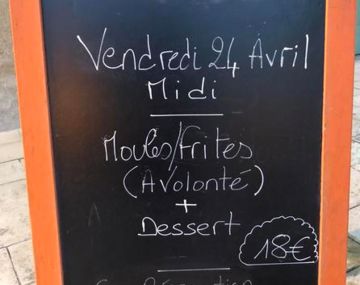 Vendredi 24 Avril
Midi
Moules/Frites
(A volonté)
+
Dessert
18€